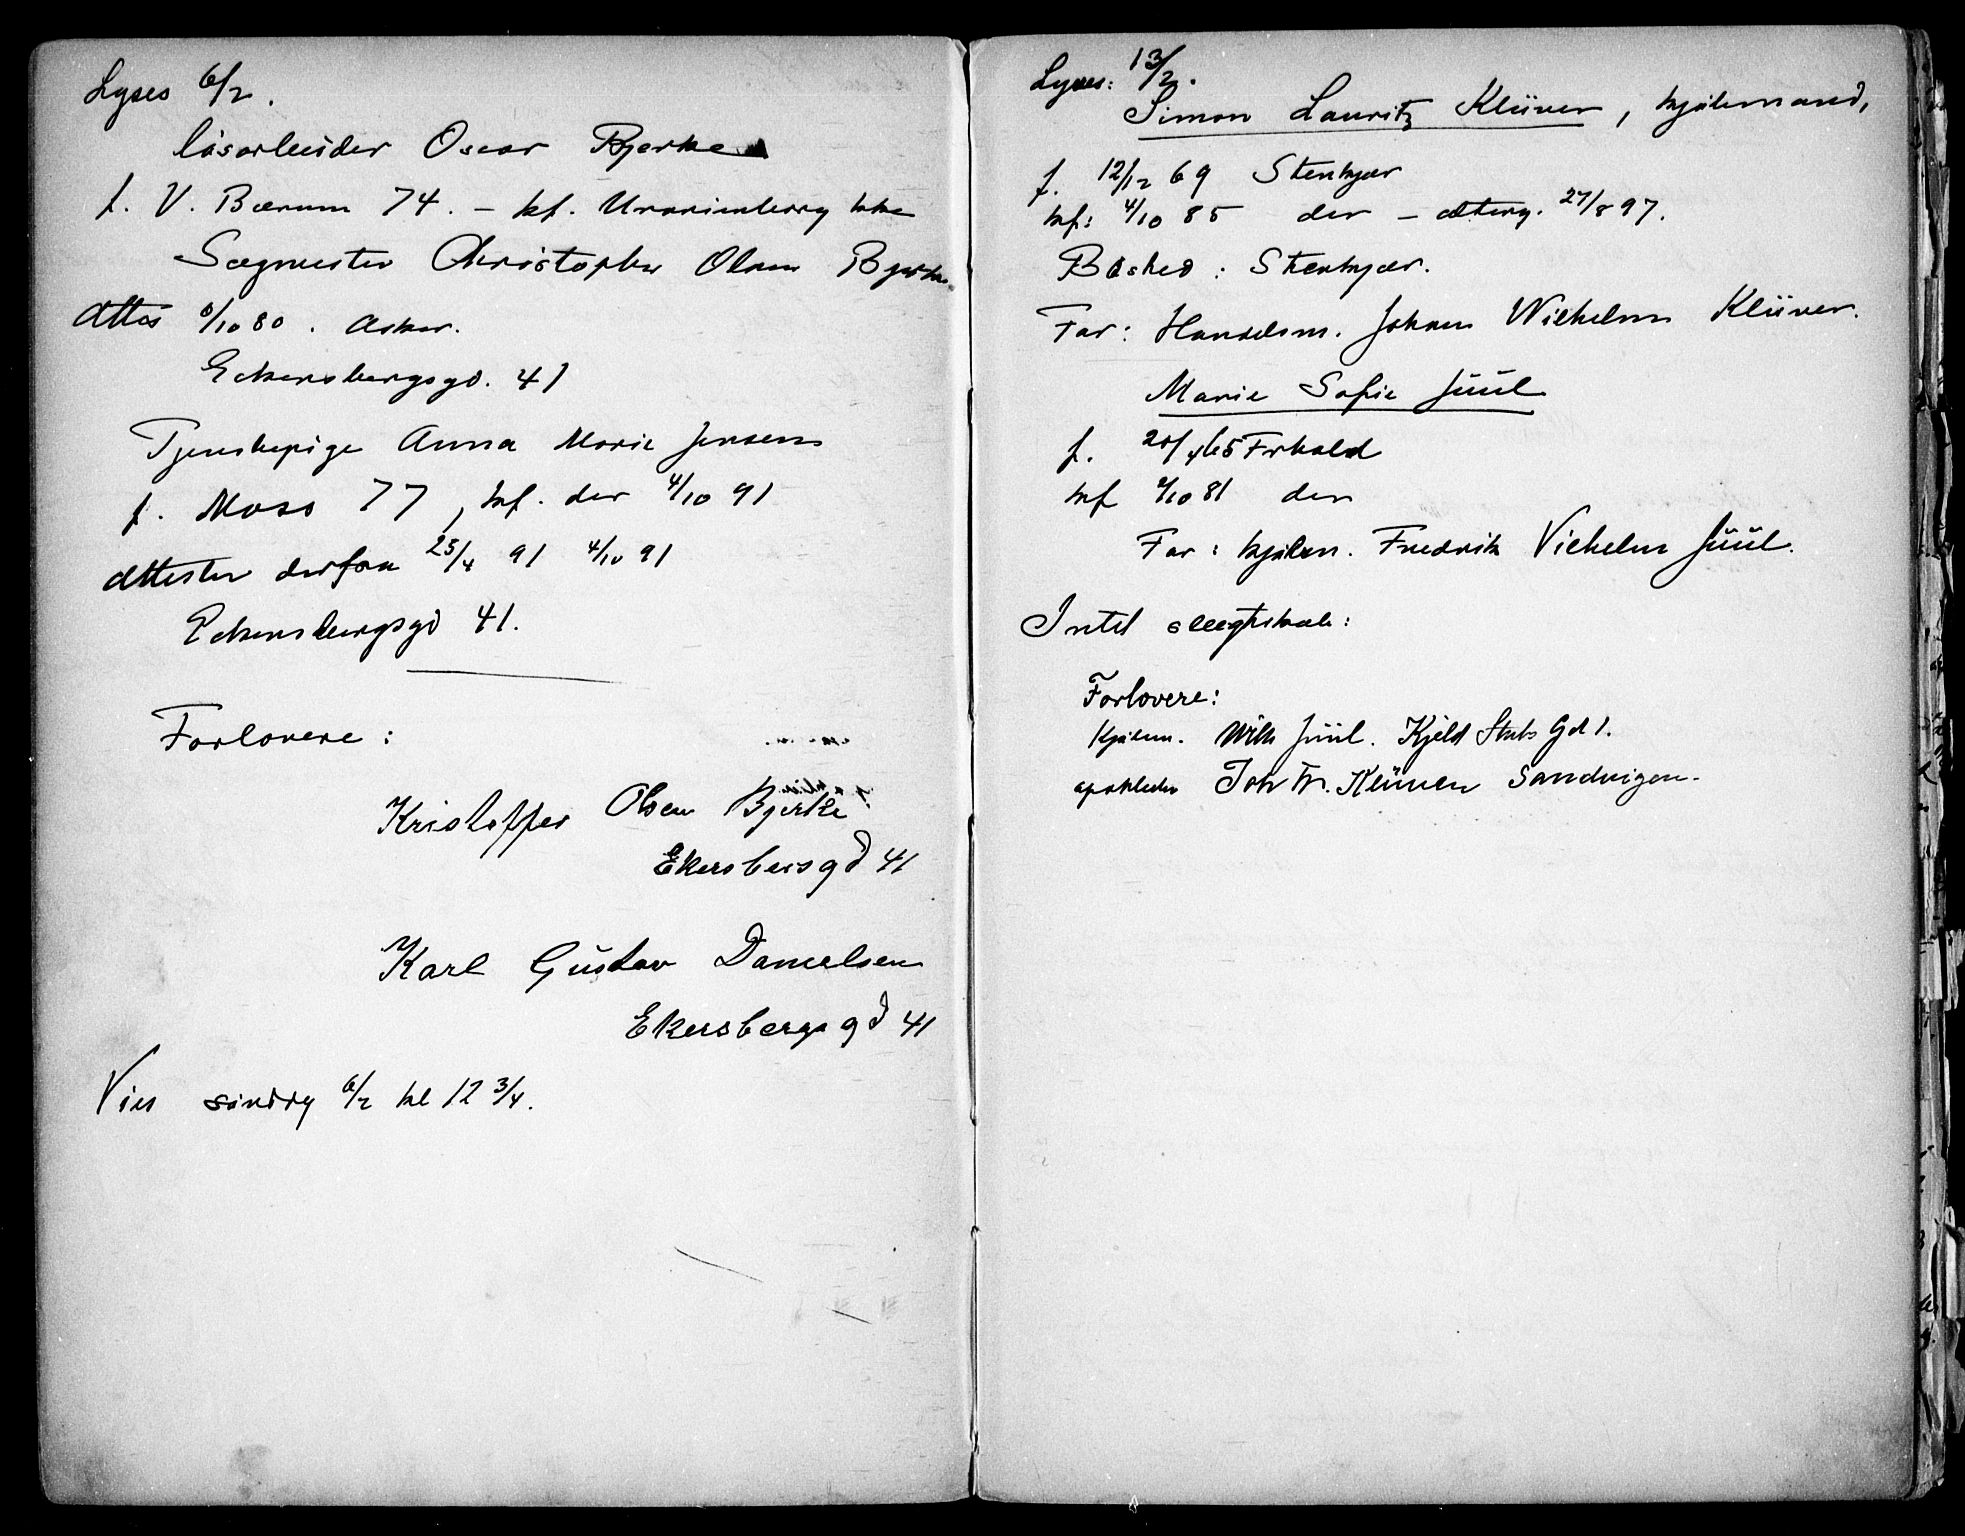 Lyses 6/2.
løsarbeider Oscar Bjerke
f. V. Bærum 74. – kf. Uranienborg kke
Sagmester Christopher Olsen Bjerke
Attes /10 80. Asker.
Eckersbergsgd. 41
Tjenestepige Anna Marie Jensen
f. Moss 77, kf. der 4/10 91
Attester derfra 25/4 91 4/10 91
Eckersbergsgd 41.
Forlovere:
Kristoffer Olsen Bjerke
Ekersbersgd 41
Karl Gustav Danielsen
Ekersbergs gd 41
Vies søndag 6/2 kl 12 3/4.
Lyses: 13/2.
Simon Lauritz Klüver, kjøbmand,
f. 12/12 69 Stenkjær
kf: 4/10 85 der – atterg. 27/8 97.
Bosted: Stenkjær.
Far: Handelsm. Johan Wilhelm Klüver.
Marie Sofie Juul
f. 65 Frhald
kf /10 81 der
Far: kjøbm. Fredrik Vilhelm Juul.
Intet slegtskab:
Forlovere:
Kjøbm. Wilh Juul. Kjeld Stubs Gd 1.
apotheker Joh Fr. Klüver Sandvigen.